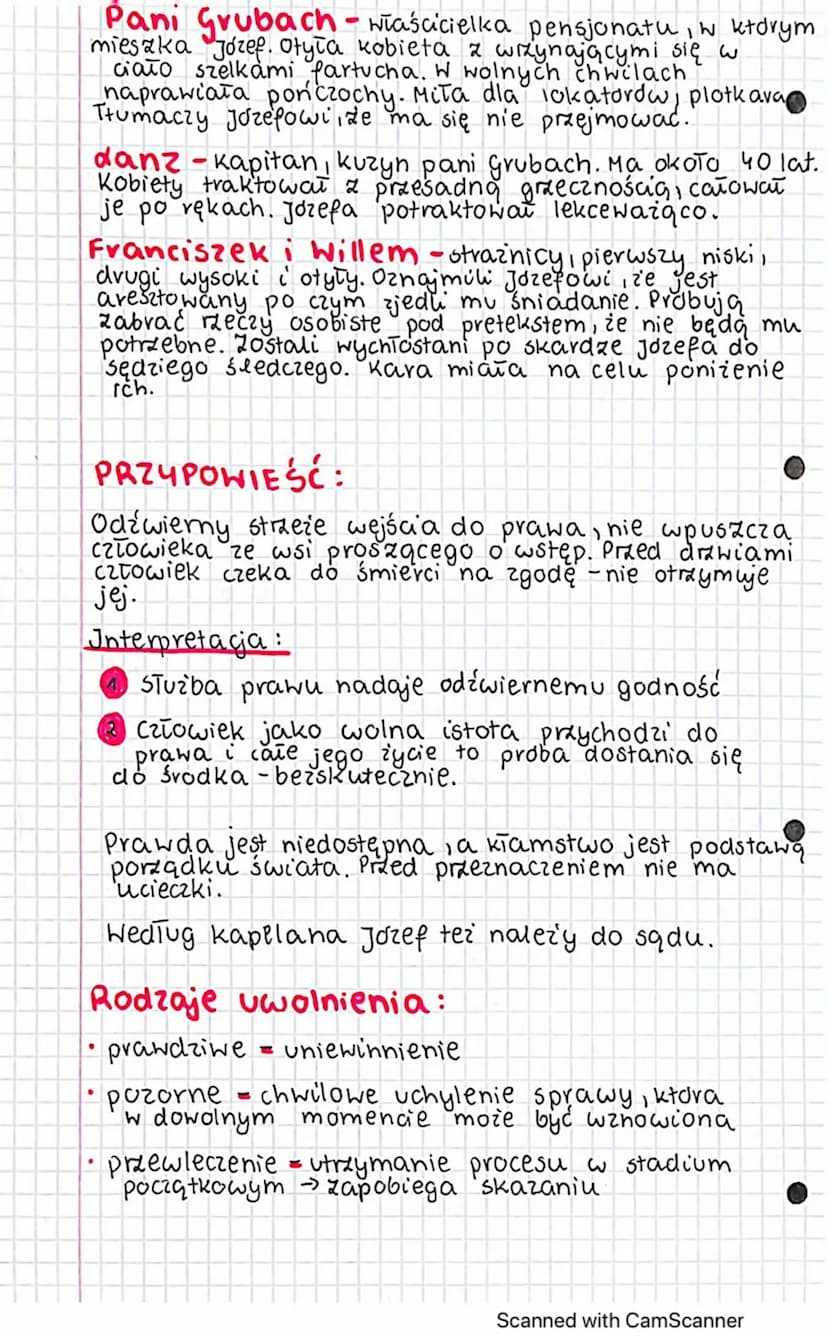 Pani Grubach - właścicielka pensjonatu, w którym
mieszka Józef. Otyła kobieta z wrzynającymi się w
ciało szelkami fartucha. W wolnych chwilach
naprawiała pończochy. Miła dla lokatorów, plotkara
Tłumaczy Józefowi, że ma się nie przejmować.
danz - kapitan, kuzyn pani Grubach. Ma około 40 lat.
Kobiety traktował z przesadną grzecznością, całował
je po rękach. Józefa potraktował lekceważąco.
Franciszek i Willem - strażnicy, pierwszy niski,
drugi wysoki i otyły. Oznajmili Józefowi, że jest
aresztowany po czym zjedli mu śniadanie. Próbują
zabrać rzeczy osobiste pod pretekstem, że nie będą mu
potrzebne. Zostali wychłostani po skardze Józefa do
sędziego śledczego. Kara miała na celu poniżenie
ich.
PRZYPOWIEŚĆ:
Odźwierny strzeże wejścia do prawa, nie wpuszcza
człowieka ze wsi proszącego o wstęp. Przed drzwiami
człowiek czeka do śmierci na zgodę - nie otrzymuje
jej.
Interpretacja:
1. Służba prawu nadaje odźwiernemu godność
2. Człowiek jako wolna istota przychodzi do
prawa i całe jego życie to próba dostania się
do środka - bezskutecznie.
Prawda jest niedostępna, a kłamstwo jest podstawą
porządku świata. Przed przeznaczeniem nie ma
ucieczki.
Według kapelana Józef też należy do sądu.
Rodzaje uwolnienia:
• prawdziwe = uniewinnienie
• pozorne = chwilowe uchylenie sprawy, która
w dowolnym momencie może być wznowiona
• przewleczenie = utrzymanie procesu w stadium
początkowym → zapobiega skazaniu
Scanned with CamScanner